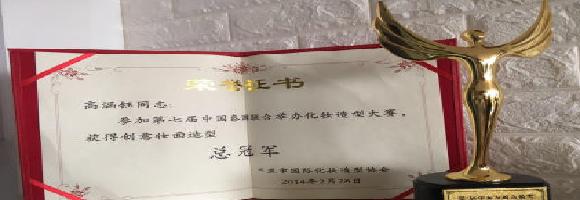 荣誉证书
高涵钰同志:
参加第七届中国泰国联合举办化妆造型大赛。
获得创意妆面造型
总冠军
亚中国际化妆造型协会
2014年2月26日